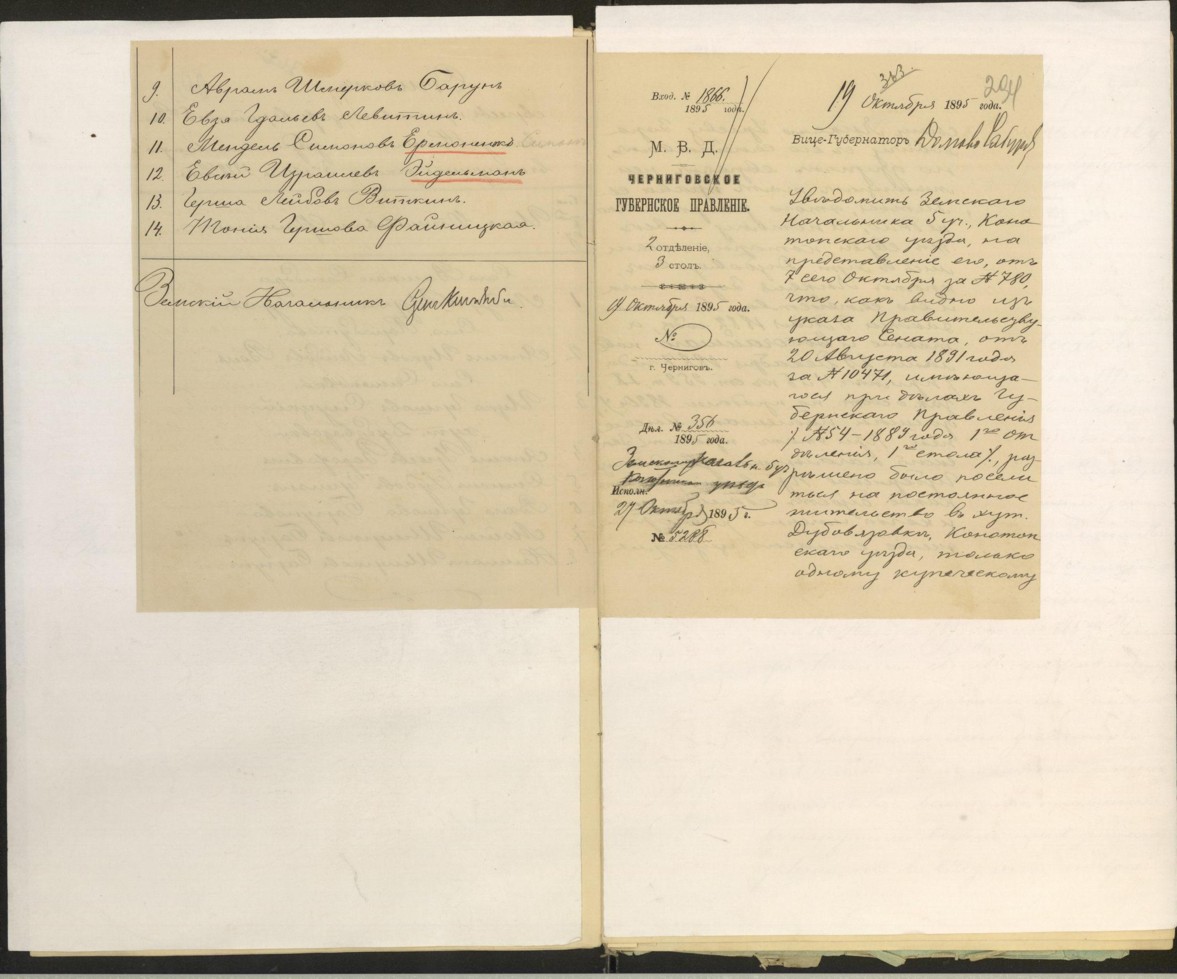 9. Аврамъ Шмерковъ Барунъ
10. Евзя Гдальевъ Левитинъ.
11. Мендель Симоновъ Ермоненко
12. Евсей Израилевъ Эйдельманъ
13. Герша Лейбовъ Виткинъ.
14. Тонія Гершова Файницкая.
Земскій Начальникъ
Вход. № 1866.
1895 года.
М. В. Д.
ЧЕРНИГОВСКОЕ
ГУБЕРНСКОЕ ПРАВЛЕНІЕ.
2 отдѣленіе,
3 столъ
19 Октября 1895 года.
№
г. Черниговъ.
Дѣл. № 356
1895 года.
Исполн.
27 Октяб 1895 г.
№ 5288
343.
204
19 Октября 1895 года.
Вице-Губернаторъ
Увѣдомить Земскаго
Начальника 5 уч., Коно
топскаго уѣзда, на
представленіе его, отъ
7 сего Октября за № 780,
что, какъ видно изъ
указа Правительству-
ющаго Сената, отъ
20 Августа 1891 года
за № 10471, имѣюща-
гося при дѣлахъ Гу-
бернскаго Правленія
/ № 54-1889 года 1го от
дѣленія, 1го стола /, раз
рѣшено было посели
ться на постоянное
жительство въ хут.
Дубовязовкѣ, Конотоп
скаго уѣзда, только
одному купеческому